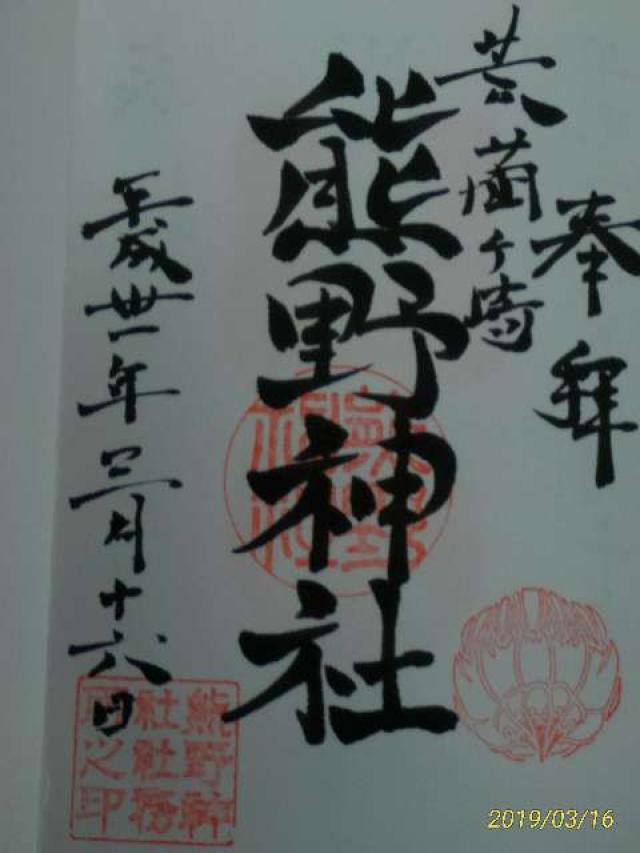 奉拝
熊野神社
平成卅一年三月十六日
熊野神
社社務
所之印
2019/03/16